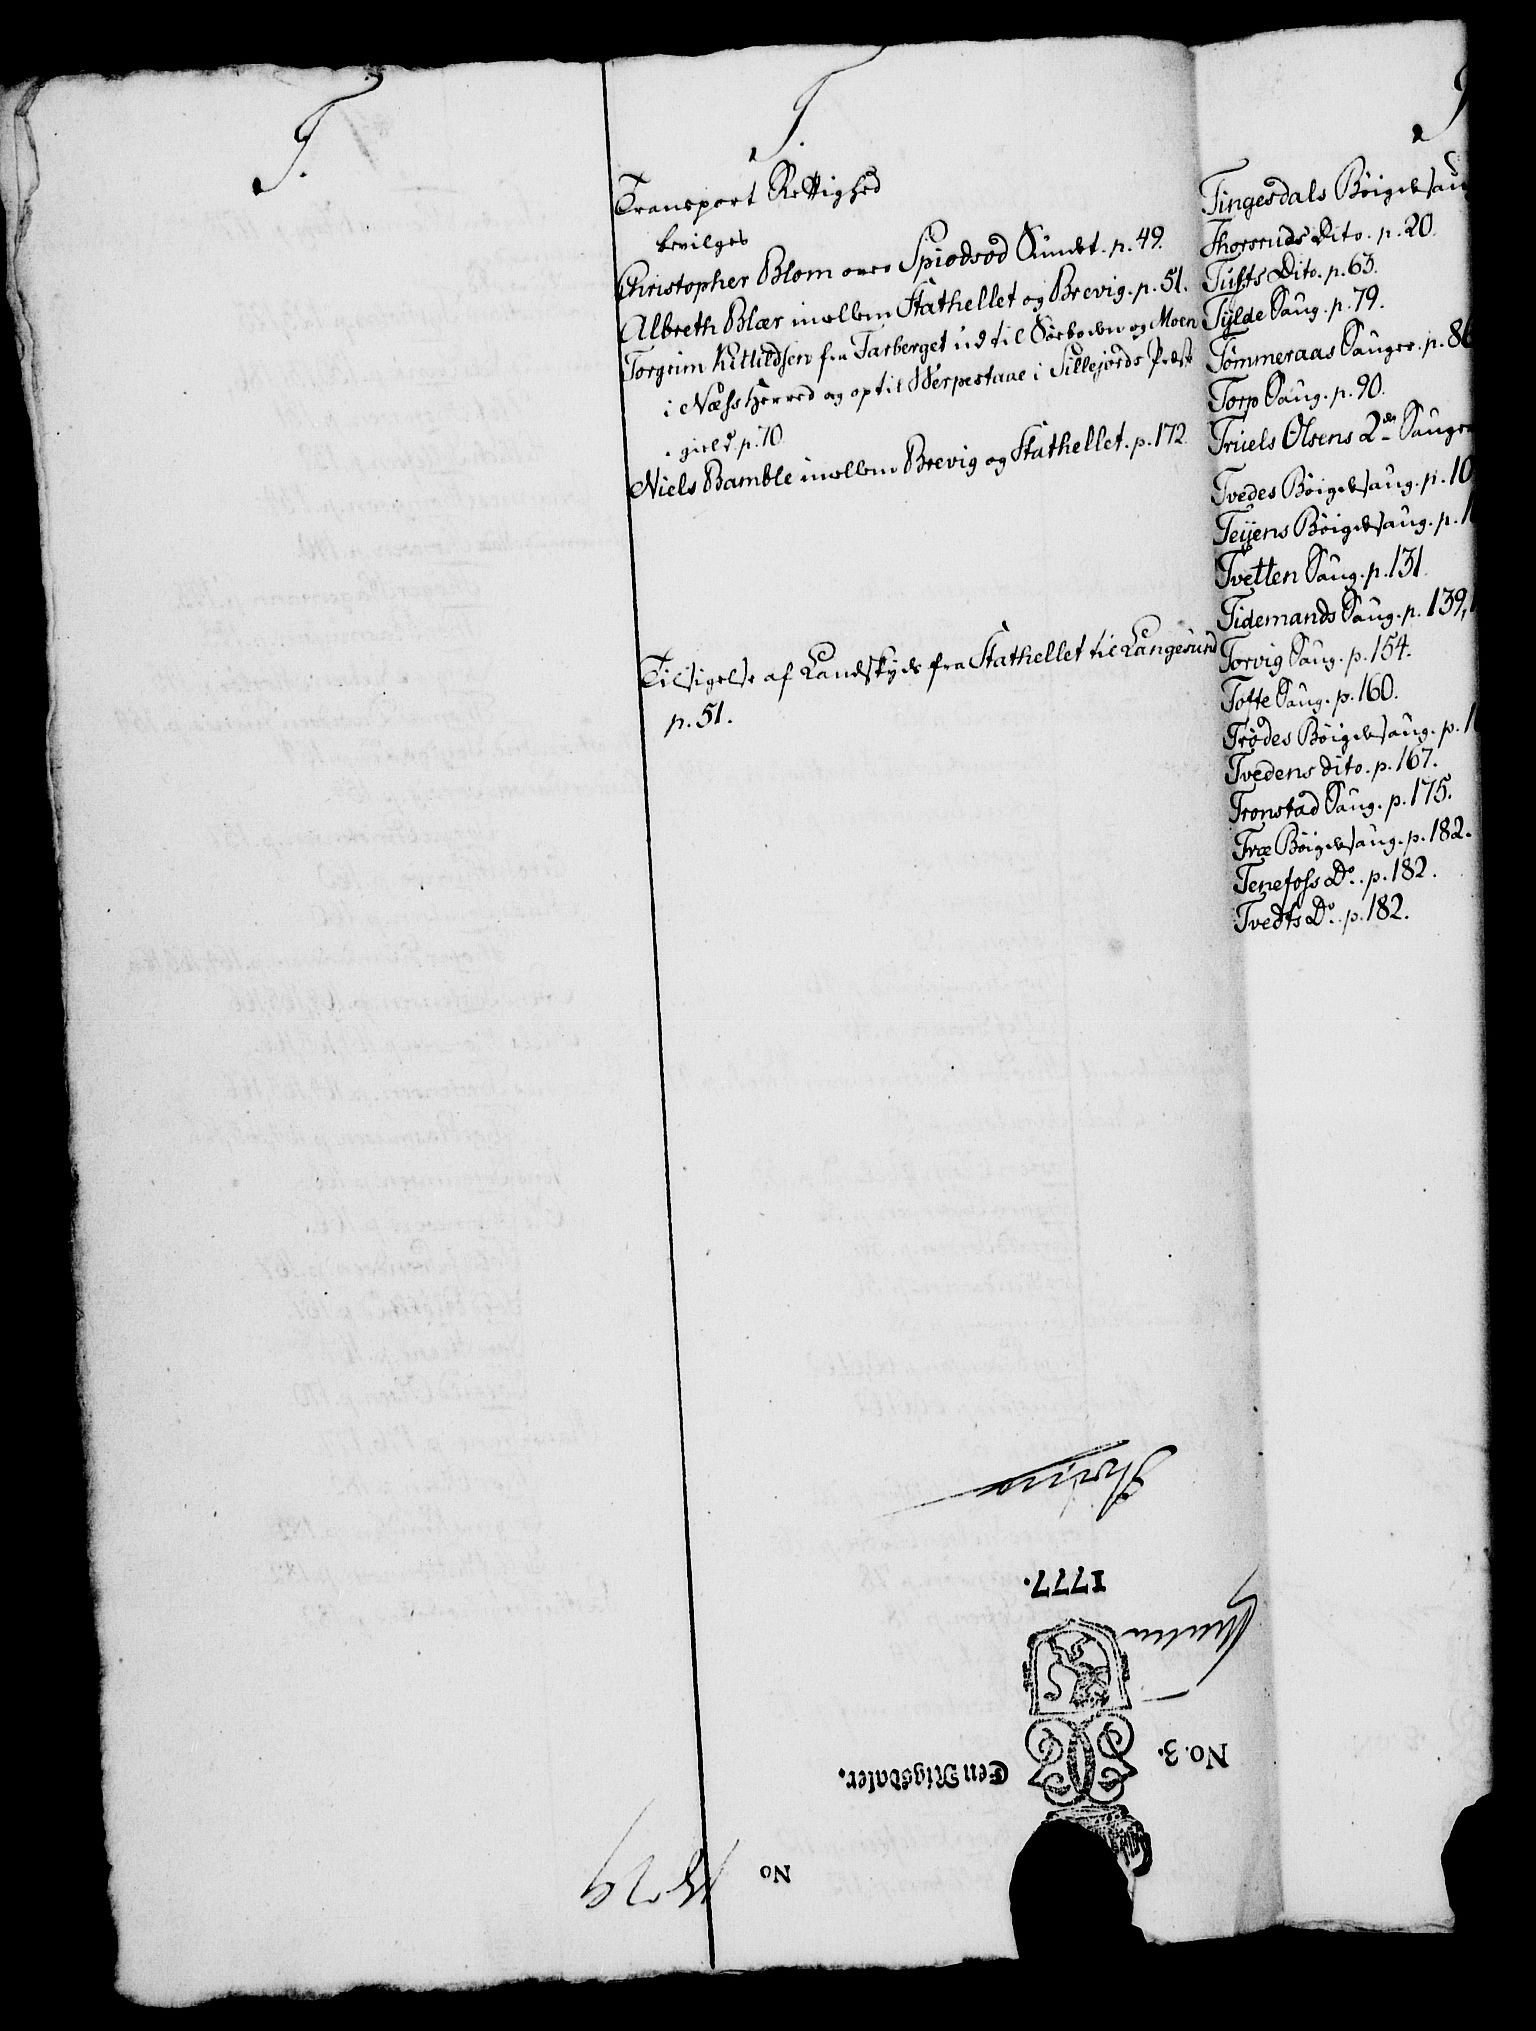 T.
T.
Transport Rettighed
bevilges
Christopher Blom over Spiodsød Sundet. p. 49.
Albreth Blær imellem Stathellet og Brevig. p. 51.
Torgrim Kittildsen fra Farberget ud til Sørboden og Moen
i Næss Herred og op til Werpestaae i Sillejords Præste
gield p. 70.
Niels Bamble imellem Brevig og Stathellet. p. 172.
Tilsigelse af Landskyds fra Stathellet til Langesund
p. 51.
Tingesdals Bøigdesaug
Thorsruds Dito. p. 20.
Tufts Dito. p. 63.
Tylde Saug. p. 79.
Tømmeraas Sauger. p. 86
Torp Saug. p. 90.
Truels Olsens 2de Sauger
Tvedes Bøigdesaug. p. 10
Teÿens Bøigdesaug. p. 1
Tvetten Saug. p. 131.
Tidemands Saug. p. 139, 1
Torvig Saug. p. 154.
Tofte Saug. p. 160.
Trødes Bøigdesaug. p. 1
Tvedens dito. p. 167.
Tronstad Saug. p. 175.
Træ Bøigdesaug. p. 182.
Tenefoss Do. p. 182.
Tvedts Do. p. 182.
1777.
No. 3.
Een Rigsdaler.
No